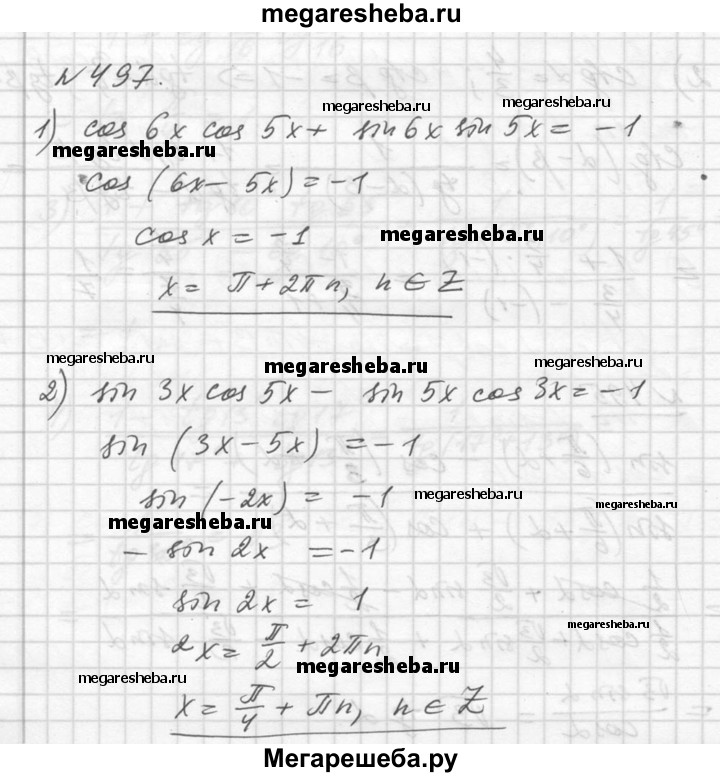 megaresheba.ru
№497.
megaresheba.ru megaresheba.ru
1) cos 6x cos 5x + sin 6x sin 5x = -1
megaresheba.ru
cos (6x - 5x) = -1
cos x = -1 megaresheba.ru
x = π + 2πn, n ∈ Z
megaresheba.ru megaresheba.ru megaresheba.ru
2) sin 3x cos 5x - sin 5x cos 3x = -1
sin (3x - 5x) = -1
sin (-2x) = -1 megaresheba.ru megaresheba.ru
megaresheba.ru
- sin 2x = -1
sin 2x = 1 megaresheba.ru
2x = π/2 + 2πn
megaresheba.ru megaresheba.ru
x = π/4 + πn, n ∈ Z
Мегарешеба.ру